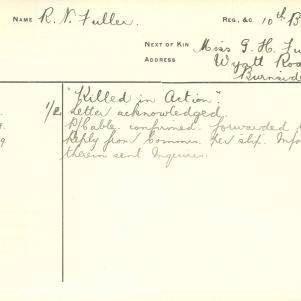 NAME R. N. Fuller. REG., &c. 10th B
NEXT OF KIN Miss G. H. Fu
ADDRESS Wyatt Roa
Burnside
"Killed in Action".
1/2 Letter acknowledged.
P/Cable. confirmed. forwarded
9 Reply from Commr. Rev slip. Info
therein sent Inquirer.